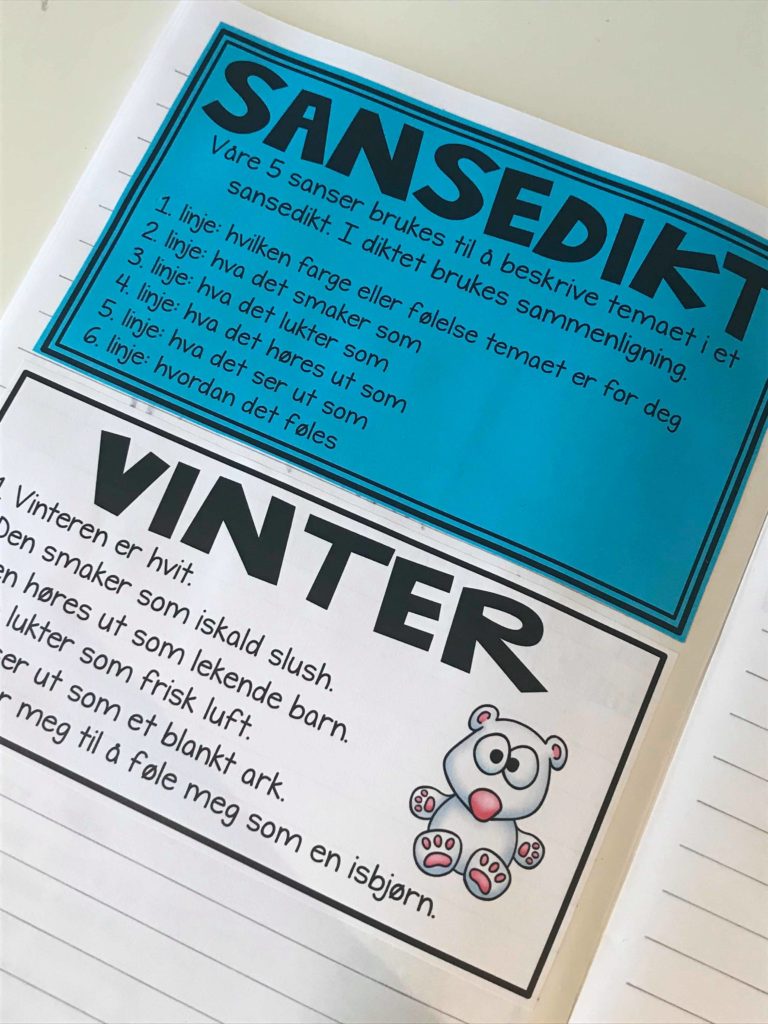 SANSEDIKT
Våre 5 sanser brukes til å beskrive temaet i et
sansedikt. I diktet brukes sammenligning.
1. linje: hvilken farge eller følelse temaet er for deg
2. linje: hva det smaker som
3. linje: hva det lukter som
4. linje: hva det høres ut som
5. linje: hva det ser ut som
6. linje: hvordan det føles
VINTER
Vinteren er hvit.
Den smaker som iskald slush.
en høres ut som lekende barn.
lukter som frisk luft.
ser ut som et blankt ark.
r meg til å føle meg som en isbjørn.